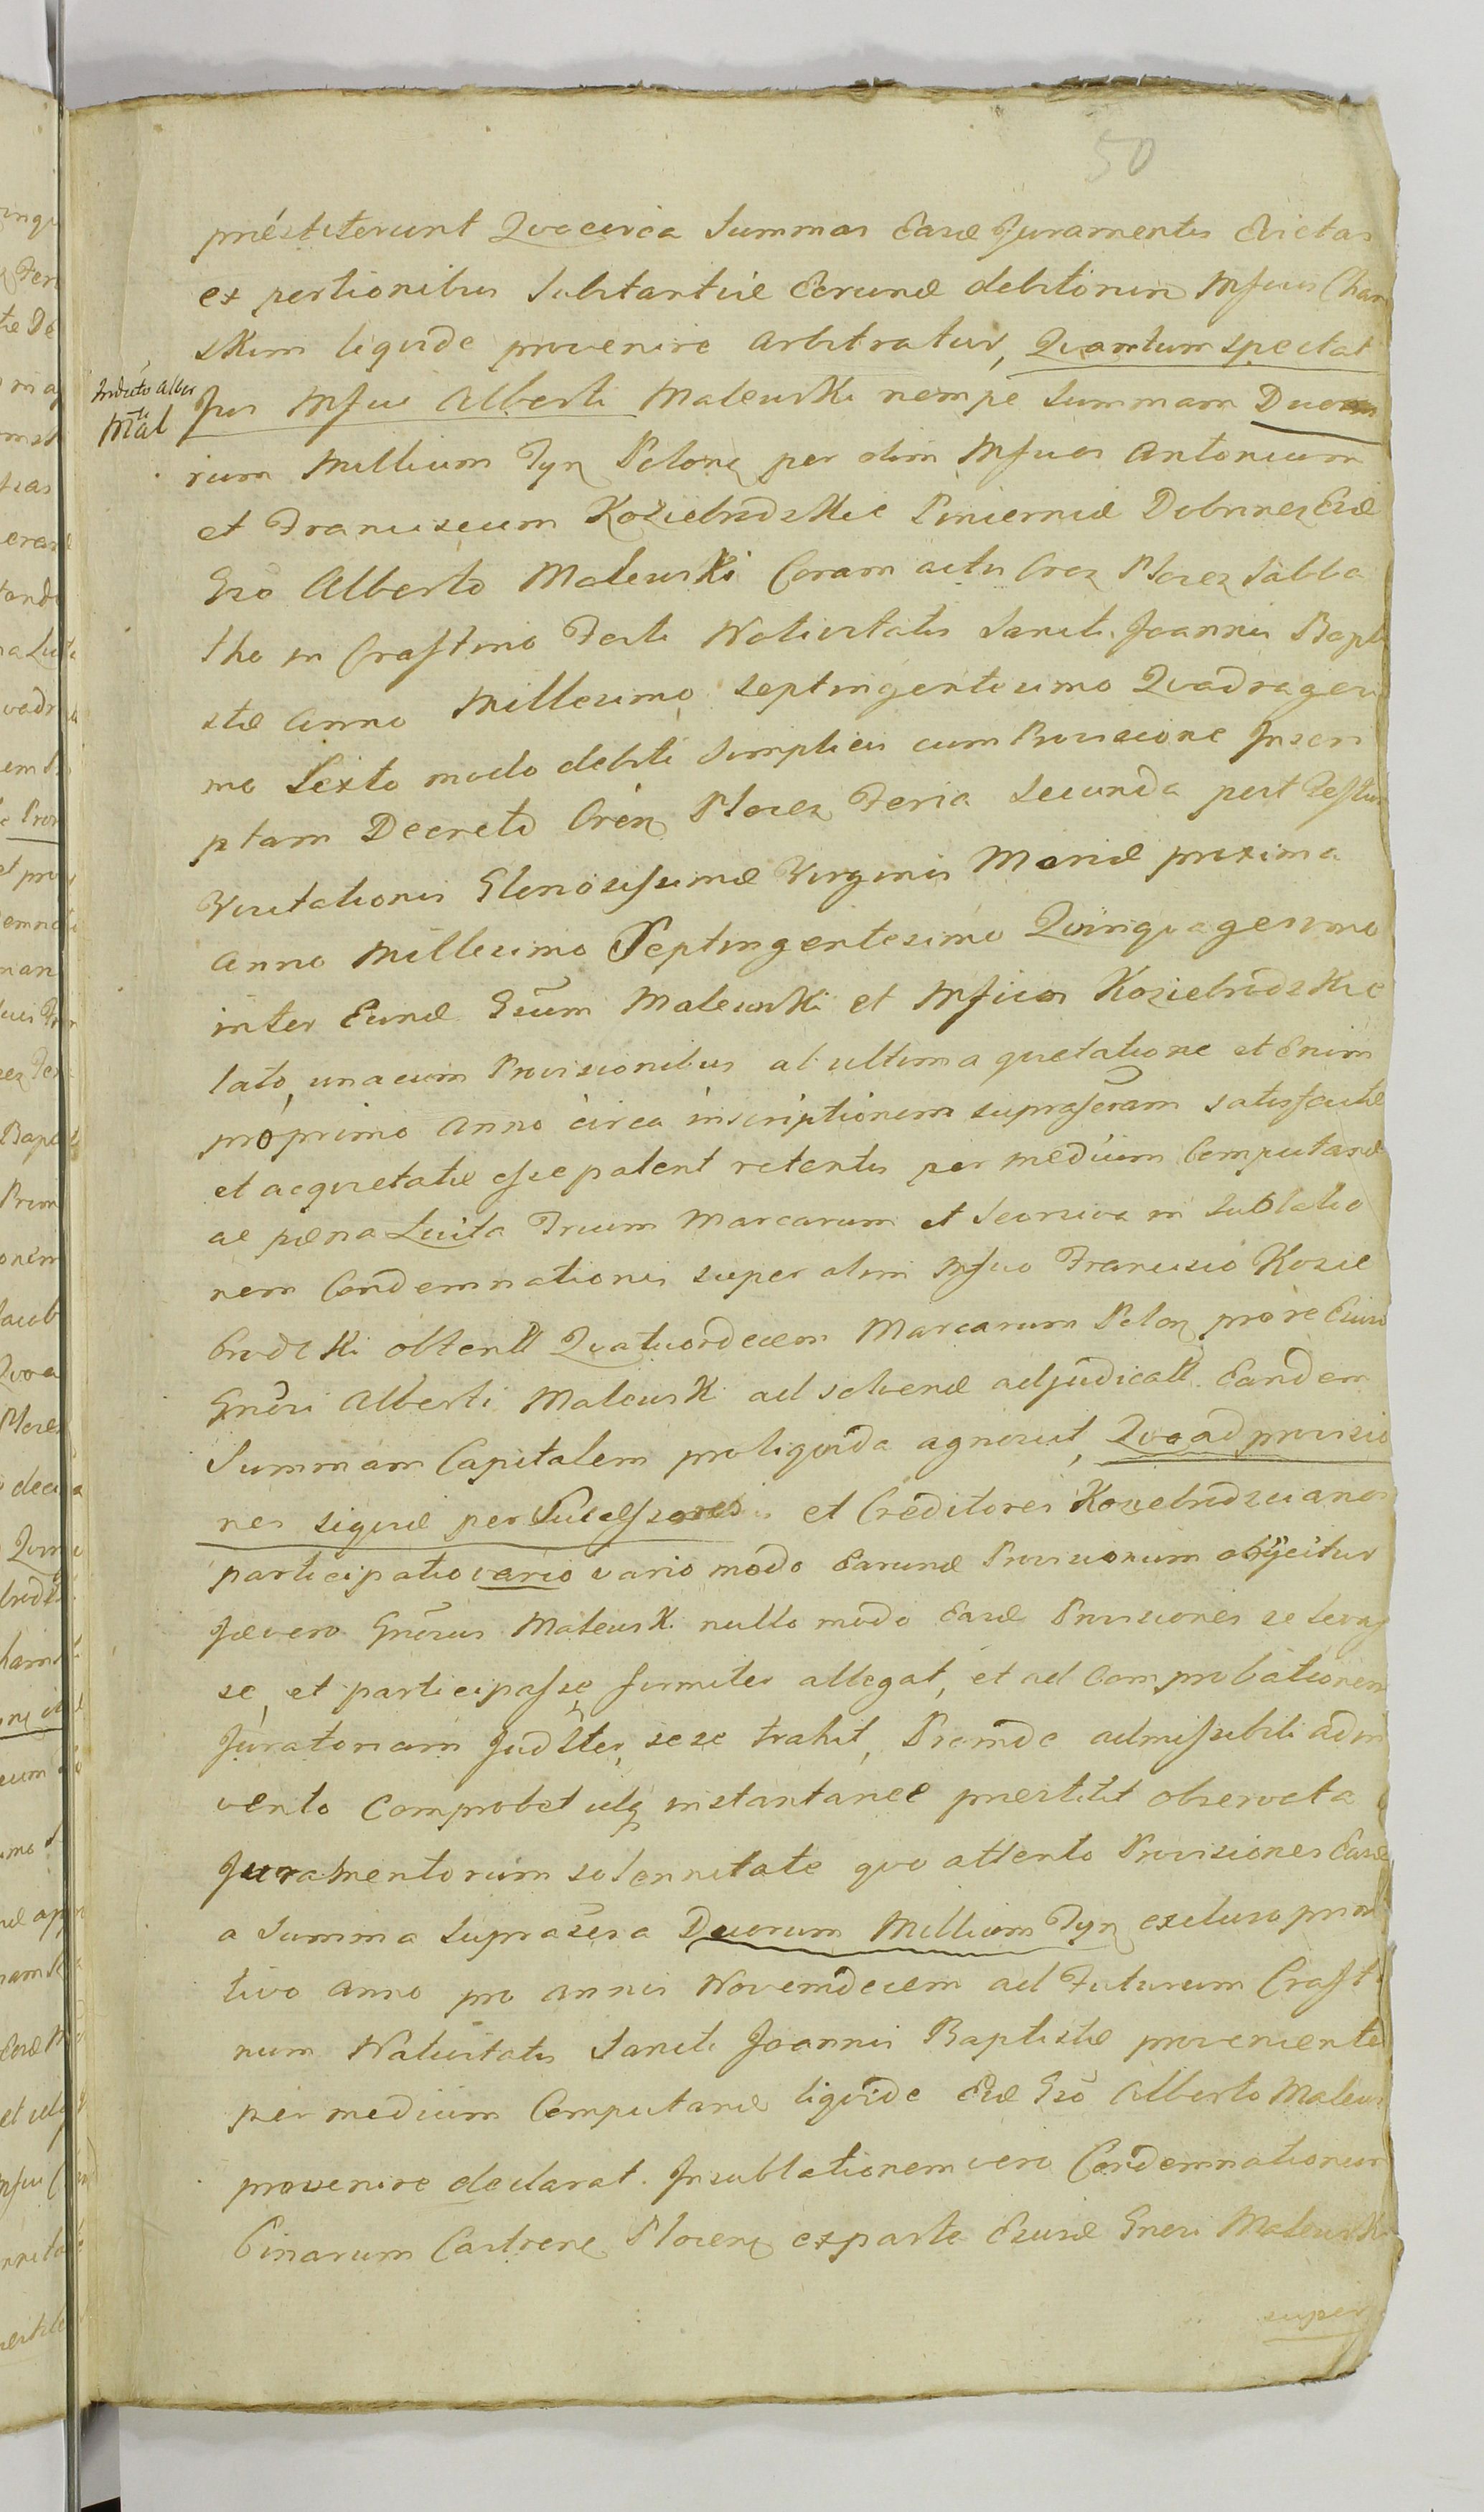 50
præstiterunt Quocirca Summas Easd Juramentis Evictas
ex portionibus Substantiæ Eorund debitorum Mfcus Cham
skim liquide provenire arbitratur, Quantum spectat
Indeito Alber
ti
Mal
Jus Mfici Alberti Maleuski nempe Summam Duom
rium Millium Tyn Polonq per olim Mfcos Antonium
et Franciscum Koziebrodzkie Pincernid Dobrinez Eid
Gso Alberto Maleuski Coram actis Crez Plocez Sabba
tho in Crastino Festi Nativitatis Sancti Joannis Bapti
stæ Anno Millesimo Septingentesimo Quadragesi
mo Sexto modo debiti Simplicis cum Provisione Inscri
ptam Decreto Oren Plocez Feria Secunda post Festum
Visitationis Gloriosissimæ Virginis Mariæ proxima
Anno Millesimo Septingentesimo Quinquagesimo
inter Eund Gsum Maleuski et Mficos Koziebrodzkie
lato, unacum Provisionibus ab ultima quietatione et Enim
pro primo Anno circa inscriptionem supraseram satisfactæ
et acquietatæ esse patent retentis per medium Computand
ac pæna Luita Trium Marcarum et Seorsiva in Sublatio
nem Condemnationis super olim Mfico Francisco Kozie
brodzki obtentt Quatuordecem Marcarum Polonq pro re Eiusd
Gnosi Alberti Maleuski ad solvend adjudicatt. Eandem
Summam Capitalem pro liquida agnoscit, Quoad provisio
nes siquid per Successores et Creditores Koziebrodzcianos
participatio vario vario modo Earund Provisionum objicitur
Id vero Gnosus Maleuski nullo modo Easd Provisiones se levas
se, et participasse firmiter allegat, et ad Comprobationem
Juratoriam Judltes, sese trahit, Proinde admissibili adin
vento Comprobet idq instantanee præstitit observata
Juramentorum solennitate quo attento Provisiones Easd
a Summa Suprascra Duorum Millium Tyn excluso primi
tivo Anno pro annis Novemdecem ad Futurum Crasti
num Nativitatis Sancti Joannis Baptistæ proveniente
per medium Computand liquide Eid Gso Alberto Maleus
provenire declarat. In sublationem vero Condemnationum
Binarum Castrenq Plocenq ex parte Eiusd Gnesi Maleuski
super